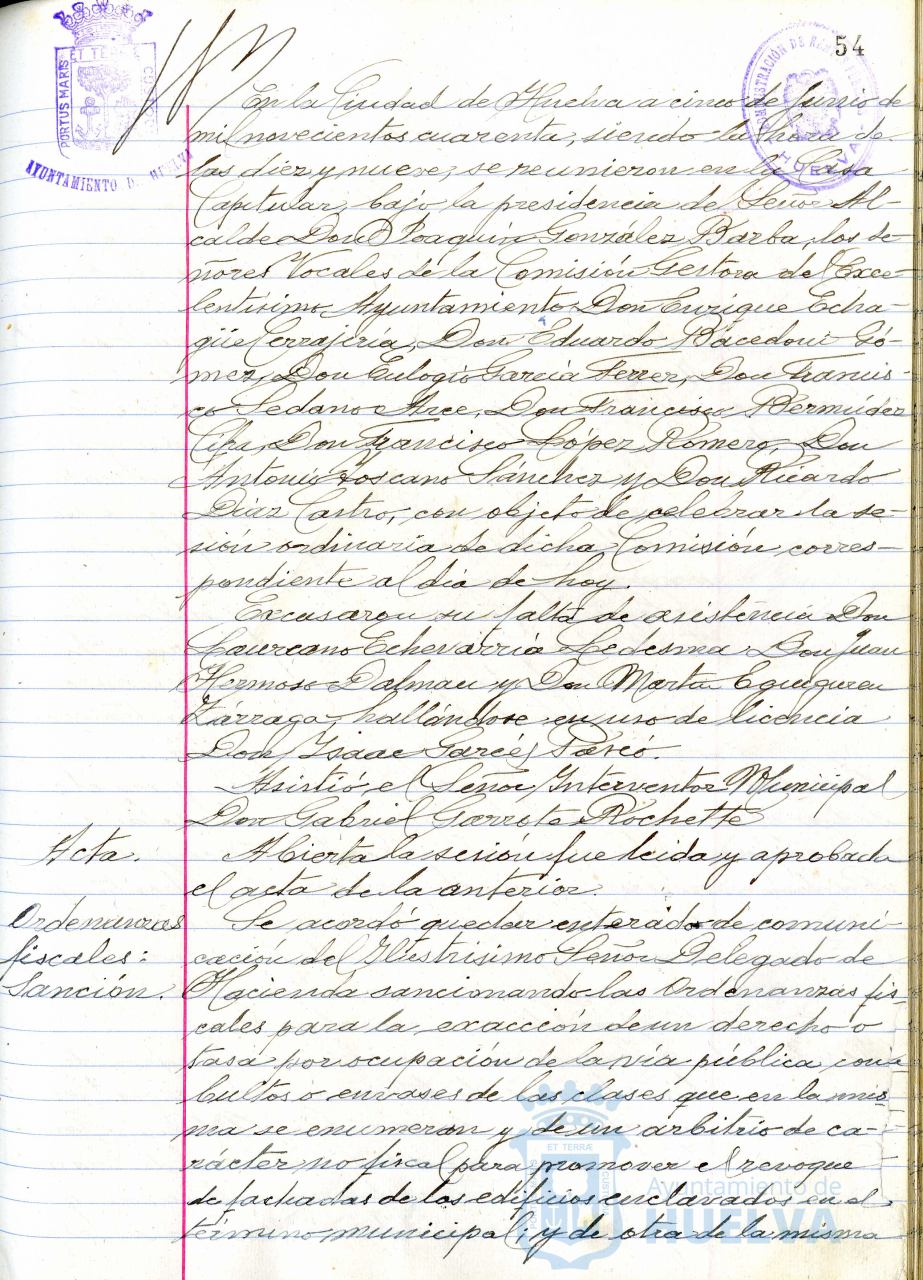 54
PORTUS MARIS
ET TERRÆ
AYUNTAMIENTO DE HUELVA
HUELVA
En la Ciudad de Huelva a cinco de Junio de
mil novecientos cuarenta, siendo la hora de
las diez y nueve, se reunieron en la Casa
Capitular, bajo la presidencia de Señor Al-
calde Don Joaquín González Barba, los se-
ñores Vocales de la Comisión Gestora del Exce-
lentísimo Ayuntamiento Don Enrique Echa-
güe Cerrajería, Don Eduardo Bacedoni Gó-
mez, Don Eulogio García Ferrer, Don Francis-
co Sedano Arce, Don Francisco Bermúdez
Don Francisco López Romero, Don
Antonio Toscano Sánchez y Don Ricardo
Díaz Castro, con objeto de celebrar la se-
sión ordinaria de dicha Comisión corres-
pondiente al día de hoy.
Excusaron su falta de asistencia Don
Laureano Echevarría Ledesma Don Juan
Hermoso Dalmau y Don Martín Eguiguren
Zárraga, hallándose en uso de licencia
Don Isaac Garcés
Asistió el Señor Interventor Municipal
Don Gabriel Garrote Rochette
Acta.
Abierta la sesión fue leida y aprobada
el acta de la anterior.
Ordenanzas
fiscales:
Sanción.
Se acordó quedar enterado de comuni-
cación del Ilustrísimo Señor Delegado de
Hacienda sancionando las Ordenanzas fis-
cales para la exacción de un derecho o
tasa por ocupación de la vía pública con
bultos o envases de las clases que en la mis-
ma se enumeran y de un arbitrio de ca-
rácter no fiscal para promover el revoque
de fachadas de los edificios enclavados en el
término municipal; y de otra de la misma
ET TERRÆ
Ayuntamiento de
HUELVA